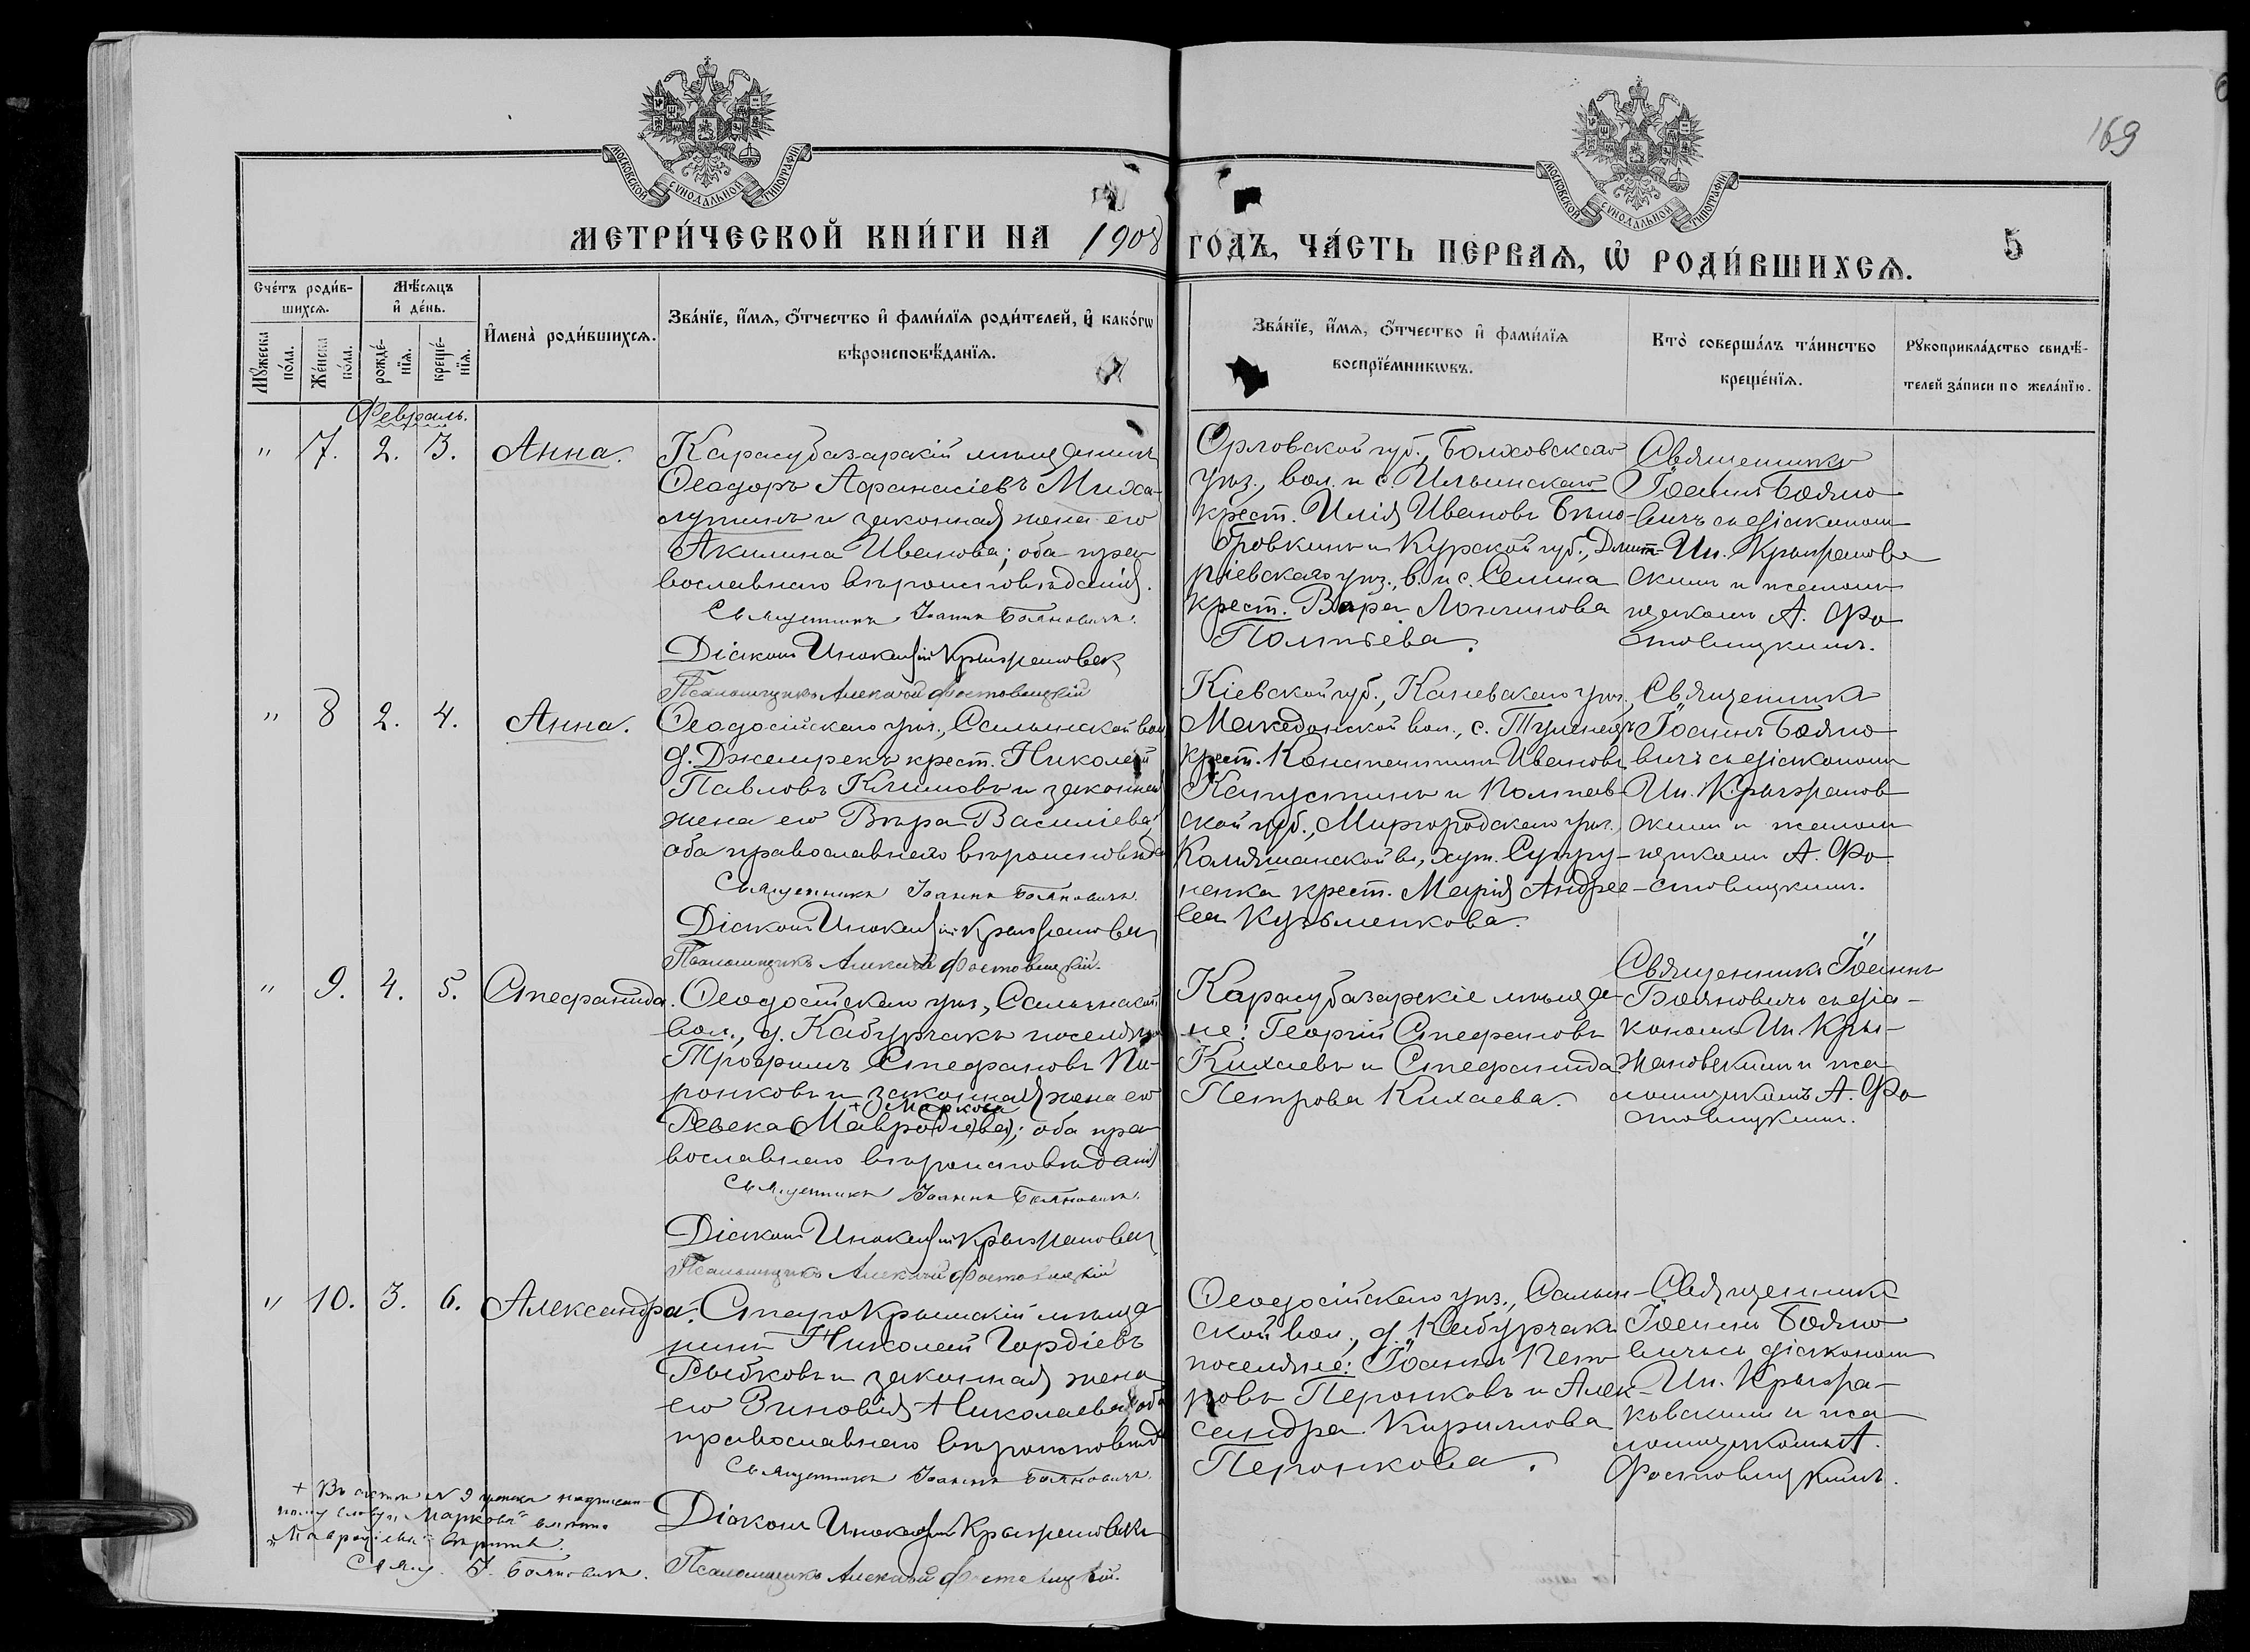 169
МОСКОВСКОЙ СѴНОДАЛЬНОЙ ТИПОГРАФІИ
МОСКОВСКОЙ СѴНОДАЛЬНОЙ ТИПОГРАФІИ
МЕТРИ́ЧЕСКОЙ КНИ́ГИ НА 1908 ГОДЪ, ЧА́СТЬ ПЕРВАѦ, Ѡ҆ РОДИ́ВШИХСѦ. 5
Сче́тъ роди́в-
шихсѧ.
Мѣ́сѧцъ
и҆ де́нь.
Мꙋ́жеска по́ла.
Же́нска по́ла.
рожде́-нїѧ.
креще́-нїѧ.
И҆мена̀ роди́вшихсѧ.
Зва́нїе, и҆́мѧ, ѻ҆́тчество и҆ фами́лїѧ роди́телей, и҆ како́гѡ
вѣроисповѣ́данїѧ.
Зва́нїе, и҆́мѧ, ѻ҆́тчество и҆ фами́лїѧ
воспрїе́мникѡвъ.
Кто̀ соверша́лъ та́инство
креще́нїѧ.
Рꙋкоприкла́дство свидѣ́-
телей за́писи по жела́нїю.
Февраль.
" 7. 2. 3. Анна.
Карасубазарскій мѣщанинъ
Ѳеодоръ Аѳанасіевъ Миха-
лутинъ и законная жена его
Акилина Иванова; оба пра-
вославнаго вѣроисповѣданія.
Священникъ Іоаннъ Бояновичъ.
Діаконъ Инокентій Крыжановск
Псаломщикъ Алексѣй Фастовицкій
Орловской губ., Болховскаго
уѣз., вол. и с. Ильинскаго
крест. Илія Ивановъ Бѣло-
бровкинъ и Курской губ., Дмит-
ріевскаго уѣз., в. и с. Селина
крест. Вѣра Логинова
Полтьева.
Священникъ
Іоаннъ Бояно-
вичъ съ діакономъ
Ин. Крыжановс
скимъ и псалом-
щикомъ А. Фа-
стовицкимъ.
" 8 2. 4. Анна.
Ѳеодосійскаго уѣз., Салынской вол.
д. Джемрекъ крест. Николай
Павловъ Климовъ и законная
жена его Вѣра Василіева,
оба православнаго вѣроисповѣда
Священникъ Іоаннъ Бояновичъ.
Діаконъ Инокентій Крыжановск
Псаломщикъ Алексѣй Фастовицкій.
Кіевской губ., Каневскаго уѣз.,
Македонской вол., с. Тулинецъ
крест. Константинъ Ивановъ
Капустинъ и Полтав-
ской губ., Миргородскаго уѣз.
Комышанской вол., хут. Супру-
ненка крест. Марія Андрее-
ва Кузьменкова.
Священникъ
Іоаннъ Бояно-
вичъ съ діакономъ
Ин. Крыжанов-
скимъ и псалом-
щикомъ А. Фа-
стовицкимъ.
" 9. 4. 5. Стефанида.
Ѳеодосійскаго уѣз., Салынской
вол., д. Кабурчакъ поселянинъ
Трофимъ Стефановъ Пи-
ронковъ и законная жена его
+ Маркова
Ревека (Мавродіева); оба пра-
вославнаго вѣроисповѣданія
Священникъ Іоаннъ Бояновичъ.
Діаконъ Инокентій Крыжановск
Псаломщикъ Алексѣй Фастовицкій
Карасубазарскіе мѣщане-
не: Георгій Стефановъ
Кихаевъ и Стефанида
Петрова Кихаева.
Священникъ Іоаннъ
Бояновичъ съ діа-
кономъ Ин. Кры-
жановскимъ и пса-
ломщикомъ А. Фа-
стовицкимъ.
" 10. 3. 6. Александра.
Старокрымскій мѣща-
нинъ Николай Гордіевъ
Рыбковъ и законная жена
его Зиновія Николаева, оба
православнаго вѣроисповѣд
Священникъ Іоаннъ Бояновичъ.
Діаконъ Инокентій Крыжановскій
Псаломщикъ Алексѣй Фастовицкій.
Ѳеодосійскаго уѣз., Салын-
ской вол., д. Кабурчакъ
поселяне: Іоаннъ Пет-
ровъ Перонковъ и Алек-
сандра Кириллова
Перонкова.
Священникъ
Іоаннъ Бояно-
вичъ съ діакономъ
Ин. Крыжа-
новскимъ и пса-
ломщикомъ А.
Фастовицкимъ.
+ Въ статьѣ № 9 надписан-
ному слову „Маркова" вмѣсто
„Мавродіева" вѣрить.
Свящ. І. Бояновичъ.